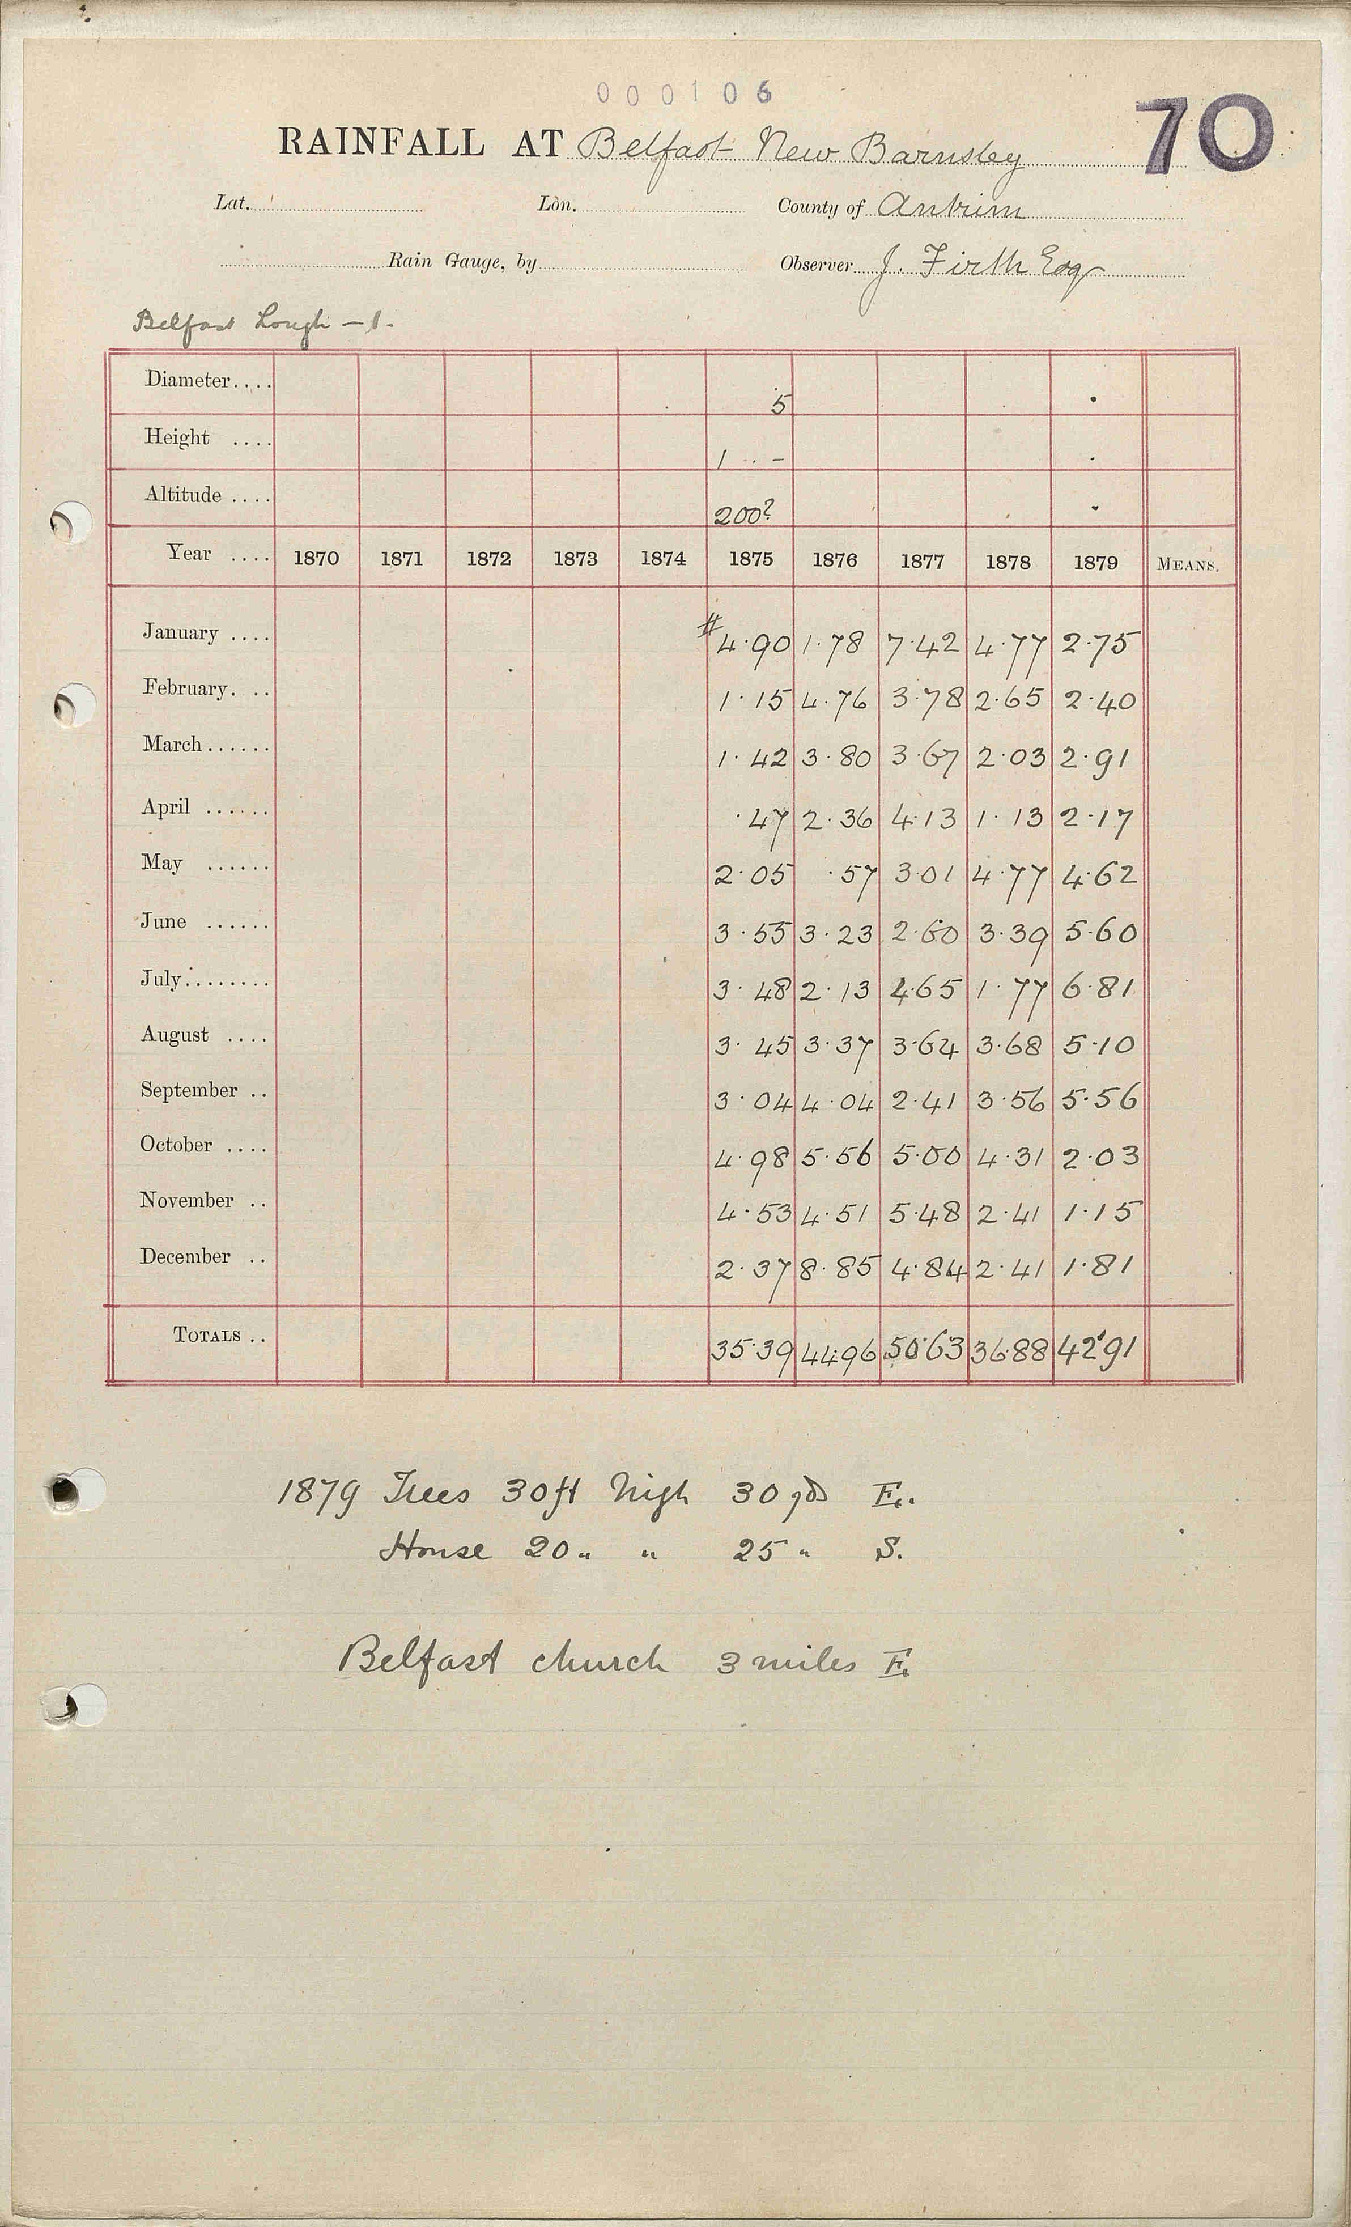 000106
70
RAINFALL AT Belfast New Barnsley
Lat. Lon. County of Antrim
Rain Gauge, by Observer J. Firth Esq
Belfast Lough - 1.
Diameter.... 5
Height .... 1 -
Altitude .... 200?
Year .... 1870 1871 1872 1873 1874 1875 1876 1877 1878 1879 MEANS.
January .... # 4.90 1.78 7.42 4.77 2.75
February. .. 1.15 4.76 3.78 2.65 2.40
March...... 1.42 3.80 3.67 2.03 2.91
April ...... .47 2.36 4.13 1.13 2.17
May ...... 2.05 .57 3.01 4.77 4.62
June ...... 3.55 3.23 2.60 3.39 5.60
July........ 3.48 2.13 4.65 1.77 6.81
August .... 3.45 3.37 3.64 3.68 5.10
September .. 3.04 4.04 2.41 3.56 5.56
October .... 4.98 5.56 5.00 4.31 2.03
November .. 4.53 4.51 5.48 2.41 1.15
December .. 2.37 8.85 4.84 2.41 1.81
TOTALS .. 35.39 44.96 50.63 36.88 42.91
1879 Trees 30ft high 30 yds E.
House 20 " " 25 " S.
Belfast church 3 miles E.